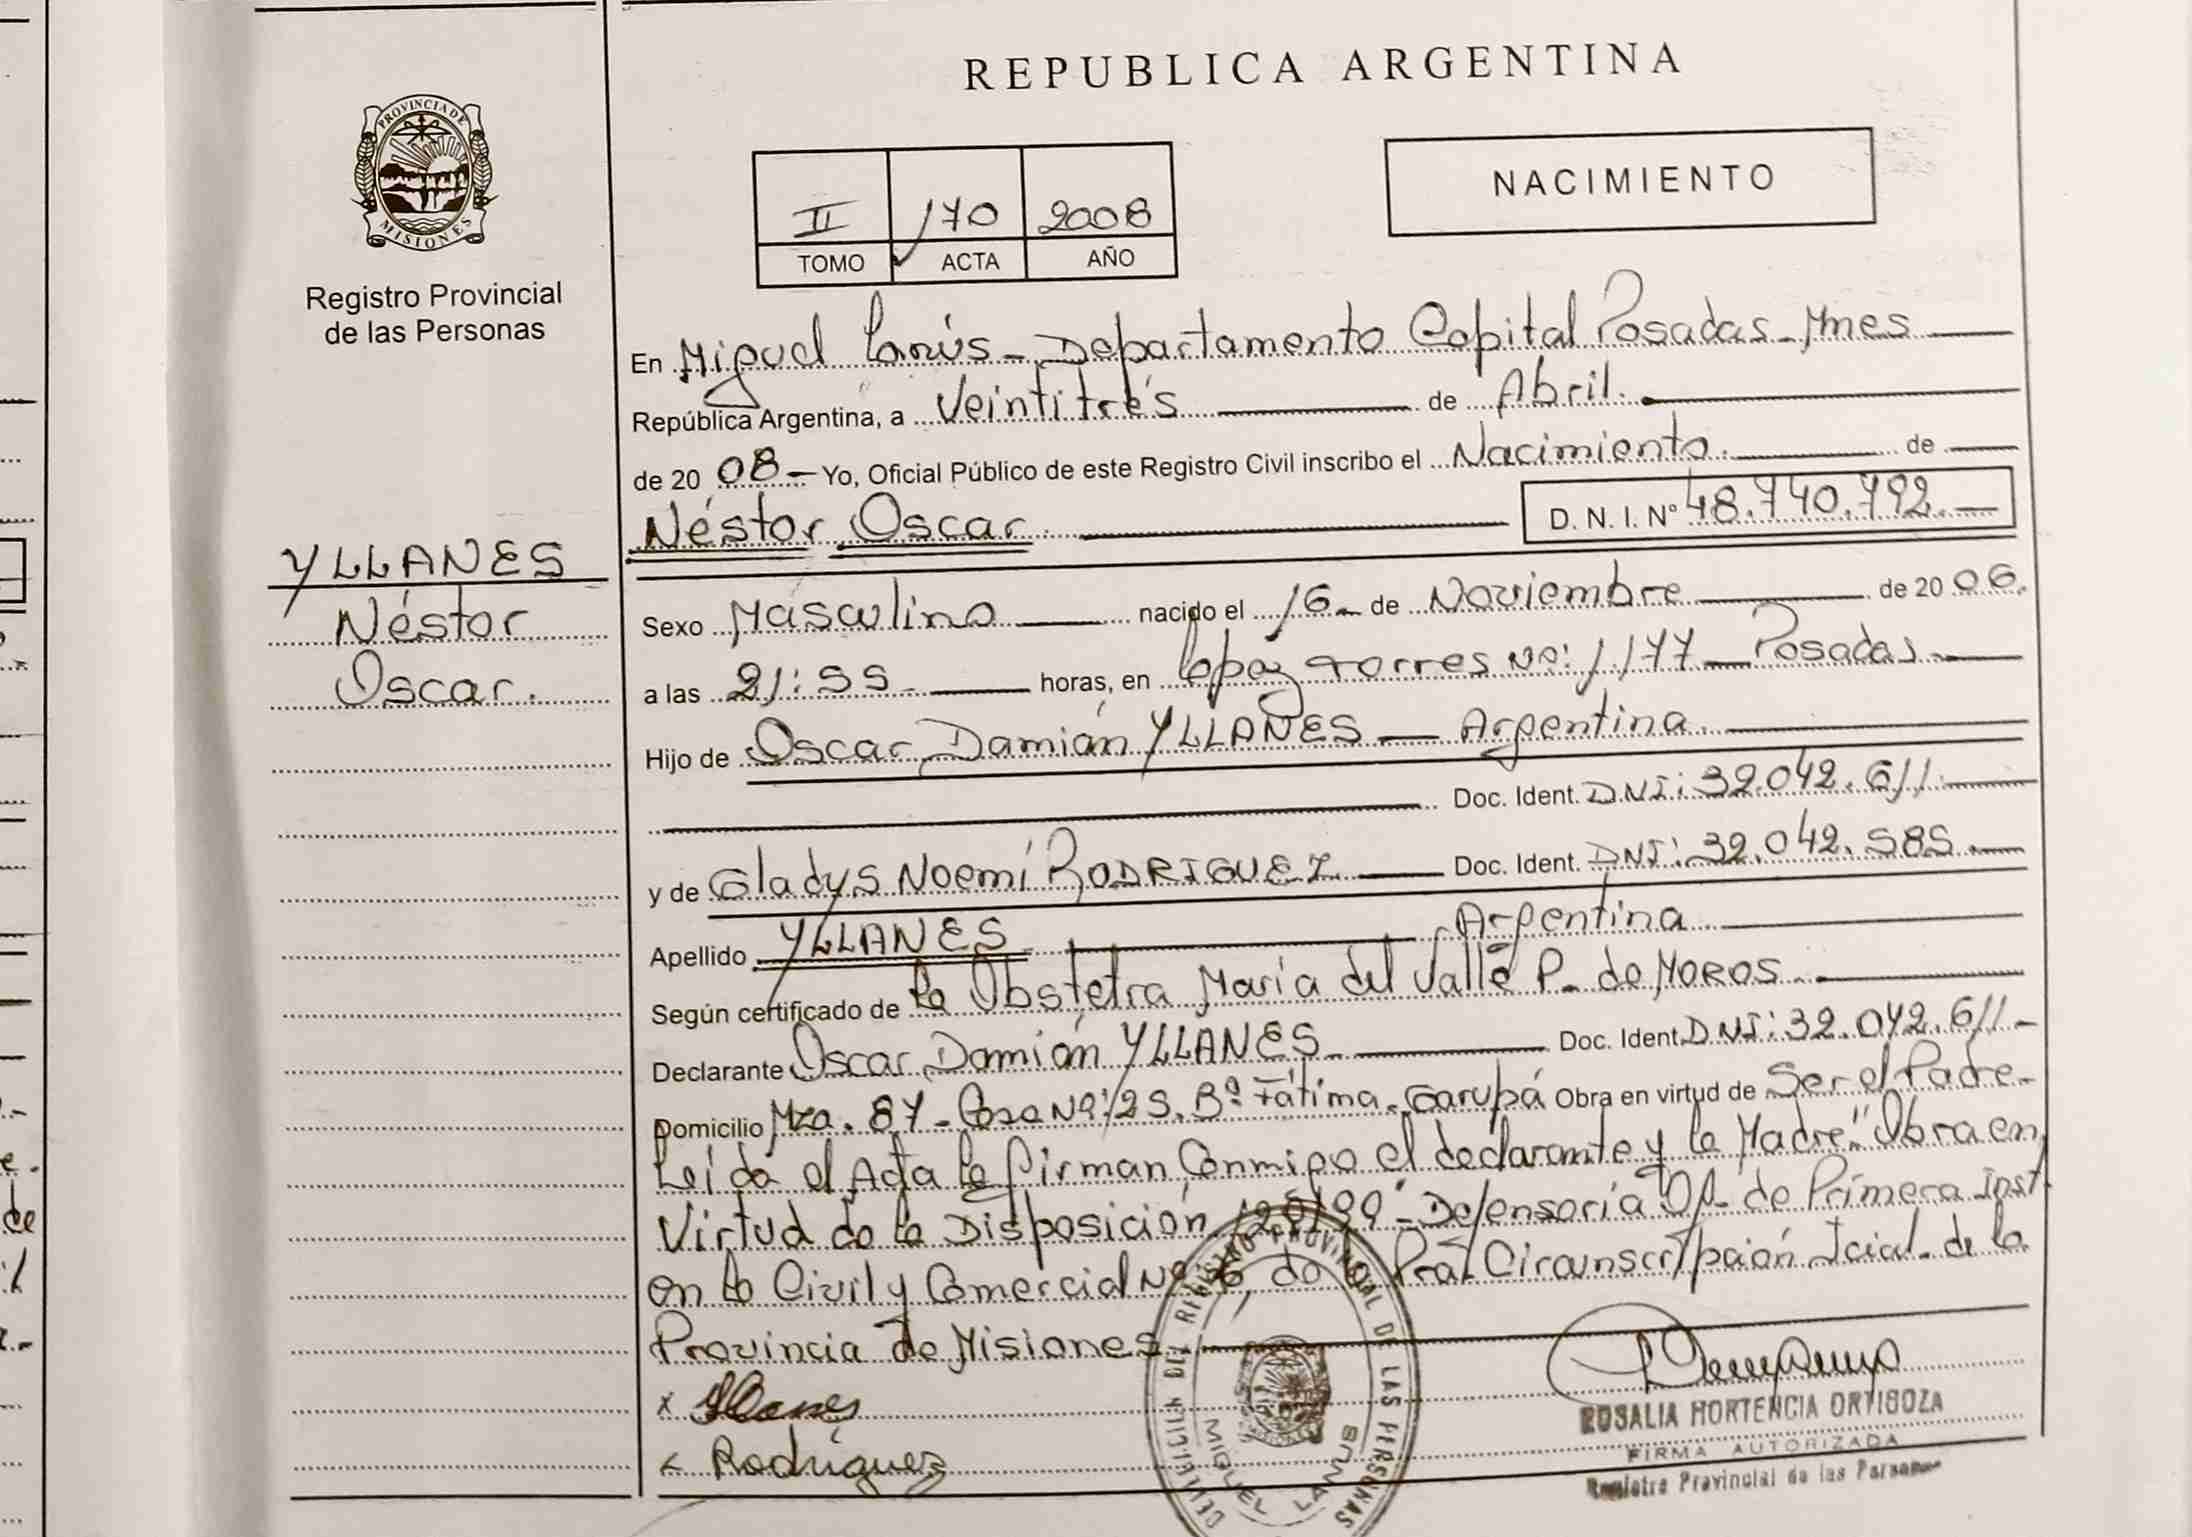 REPUBLICA ARGENTINA
PROVINCIA DE MISIONES
Registro Provincial
de las Personas
II 170 2008
TOMO ACTA AÑO
NACIMIENTO
En Miguel Lanús - Departamento Capital Posadas - Mnes
República Argentina, a Veintitrés de Abril.
de 2008 - Yo, Oficial Público de este Registro Civil inscribo el Nacimiento. de
Néstor Oscar. D. N. I. N° 48.740.792.
YLLANES
Néstor
Oscar.
Sexo Masculino nacido el 16 - de Noviembre de 2006.
a las 21:55 horas, en Lopez Torres Nº: 1.177 - Posadas
Hijo de Oscar Damián YLLANES - Argentina.
Doc. Ident. DNI: 32.042.611.
y de Gladys Noemí RODRIGUEZ Doc. Ident. DNI: 32.042.585.
Apellido YLLANES Argentina
Según certificado de la Obstetra María del Valle P. de MOROS.
Declarante Oscar Damián YLLANES Doc. Ident. DNI: 32.042.611 -
Domicilio Mza. 87 - Casa Nº: 25. Bº Fátima - Garupá Obra en virtud de Ser el Padre -
Leída el Acta la firman conmigo el declarante y la Madre." Obra en
Virtud de la Disposición Defensoría Of. de Primera Inst.
en lo Civil y Comercial Nº 6, de la Circunscripción de la
Provincia de Misiones
x Yllanes
Rodríguez
DEL REGISTRO PROVINCIAL DE LAS PERSONAS
MIGUEL LANUS
ROSALIA HORTENCIA ORTIGOZA
FIRMA AUTORIZADA
Registro Provincial de las Personas